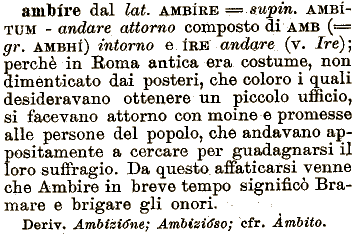 ambíre dal lat. AMBÍRE = supin. AMBÍ-
TUM - andare attorno composto di AMB (=
gr. AMBHÍ) intorno e ÍRE andare (v. Ire);
perchè in Roma antica era costume, non
dimenticato dai posteri, che coloro i quali
desideravano ottenere un piccolo ufficio,
si facevano attorno con moine e promesse
alle persone del popolo, che andavano ap-
positamente a cercare per guadagnarsi il
loro suffragio. Da questo affaticarsi venne
che Ambire in breve tempo significò Bra-
mare e brigare gli onori.
Deriv. Ambizióne; Ambizióso; cfr. Àmbito.